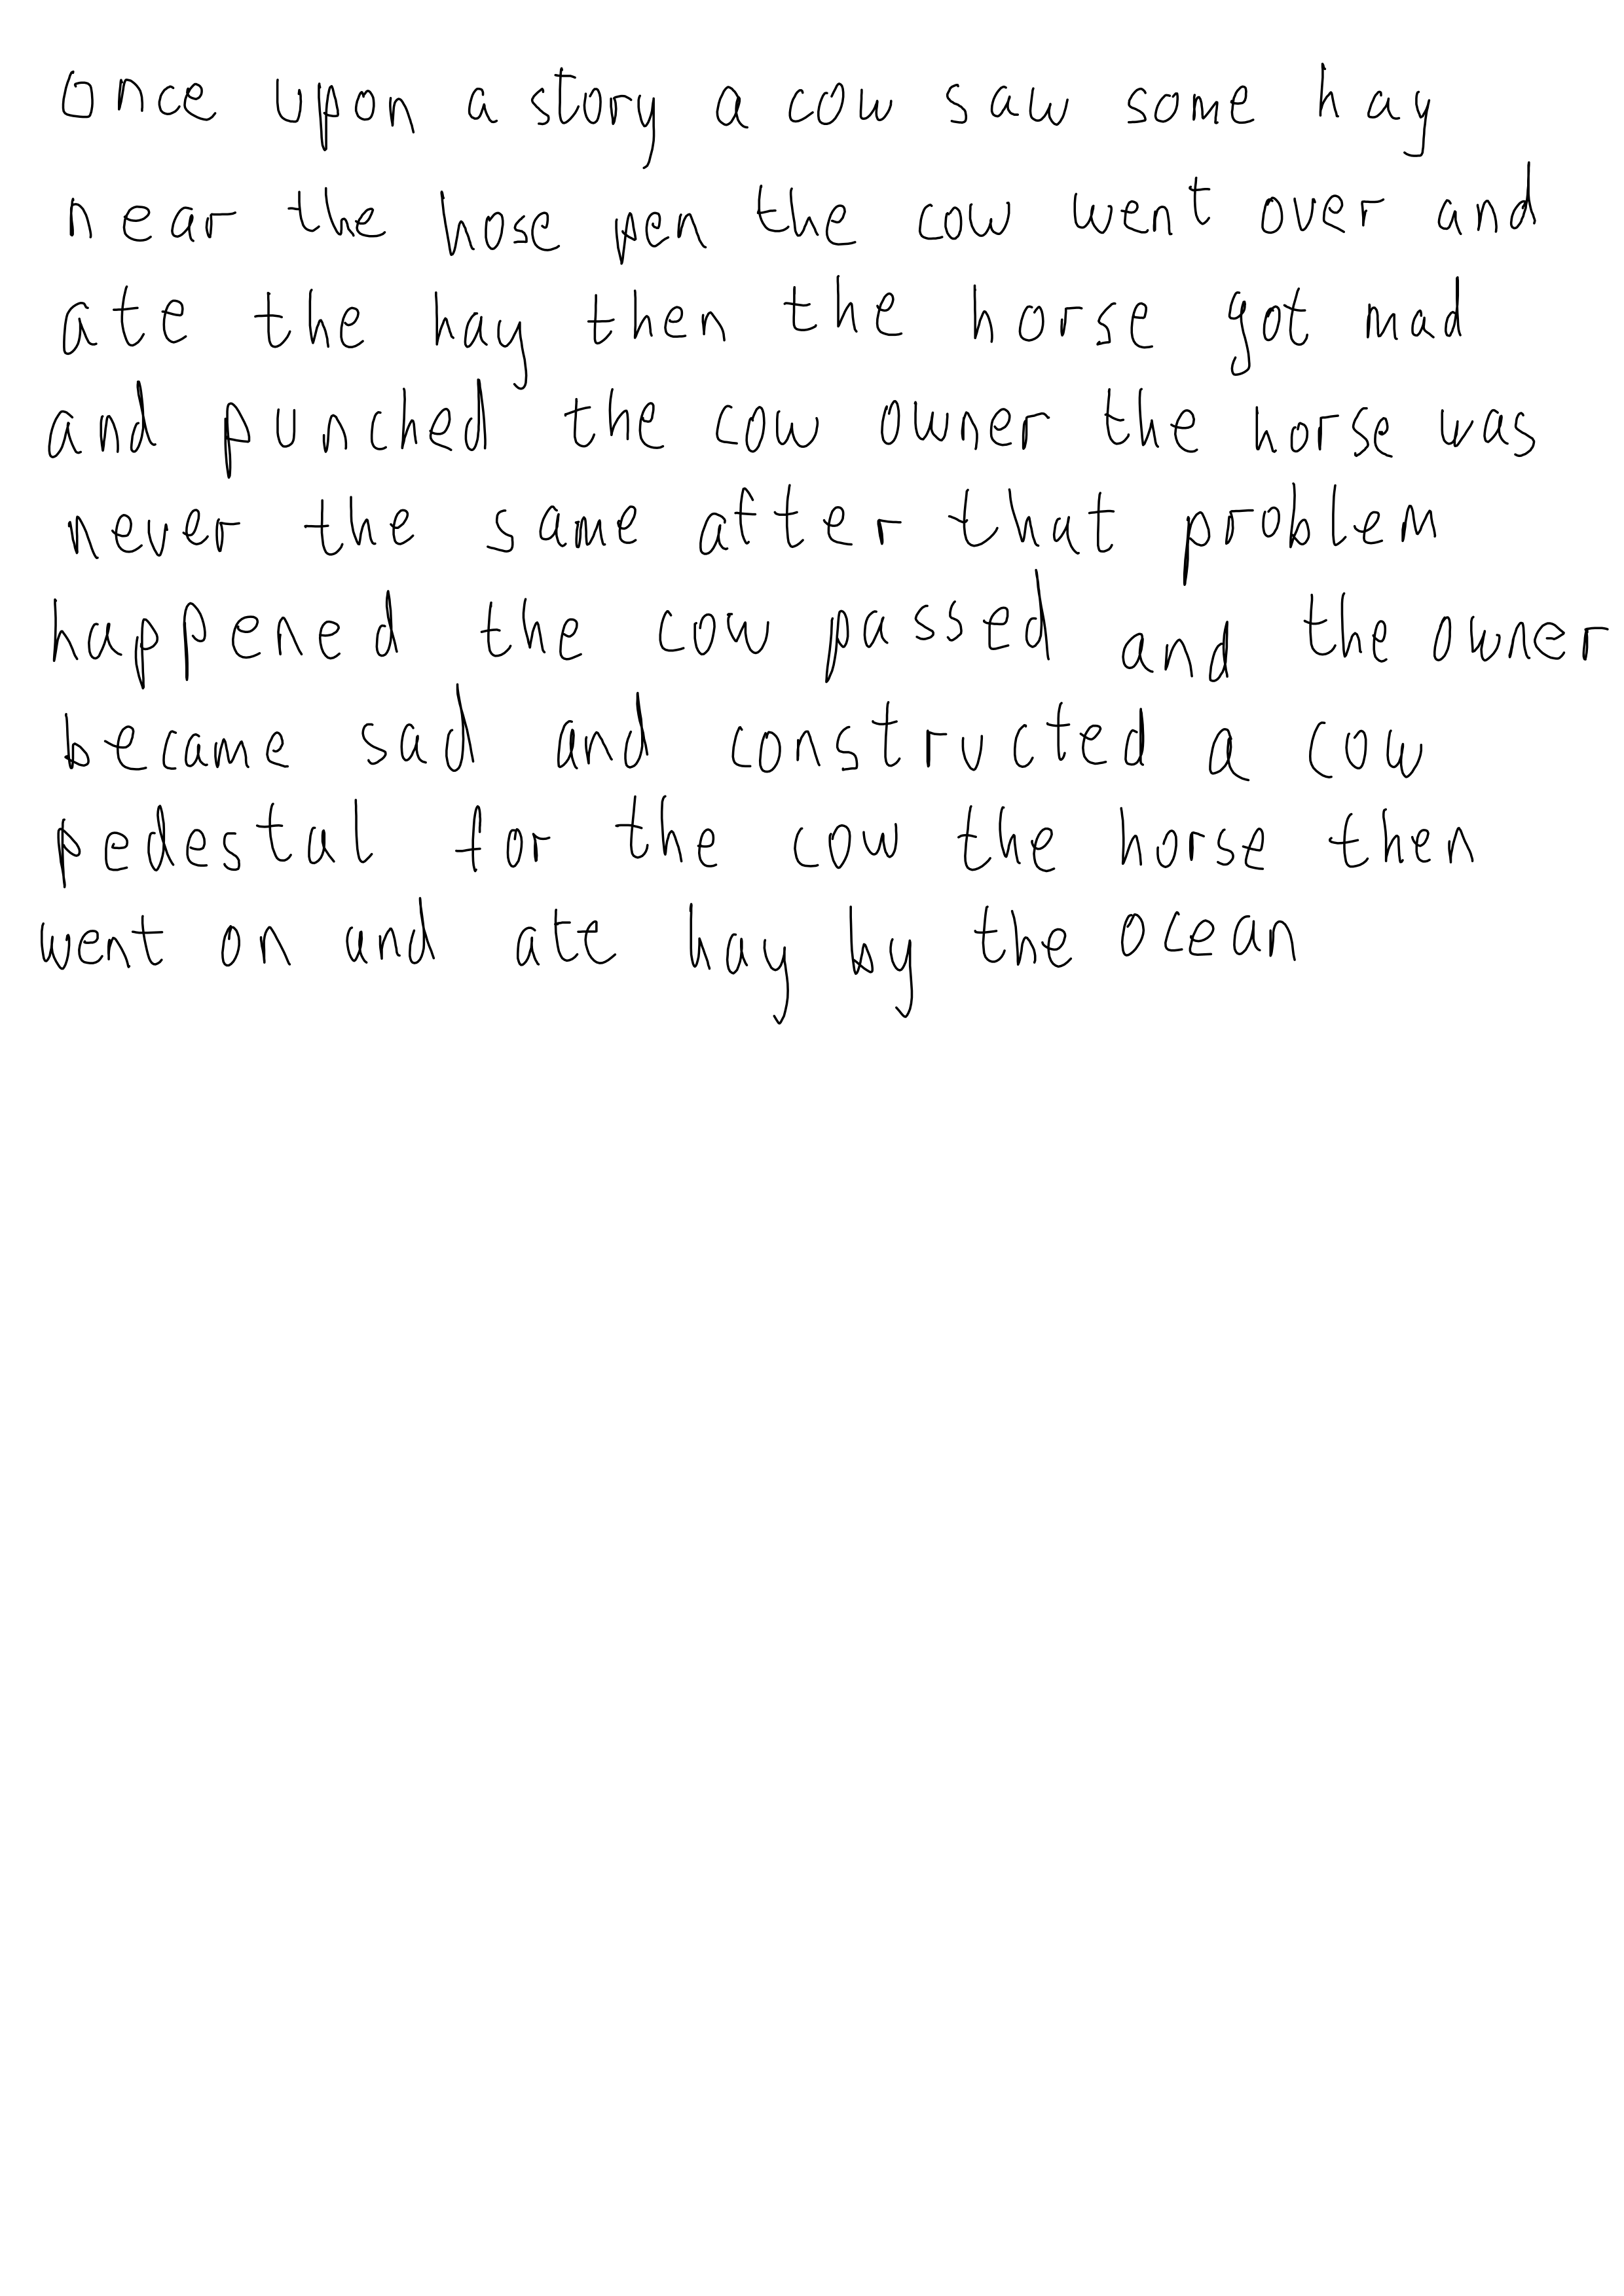 Once upon a story a cow saw some hay
near the hose pen the cow went over and
ate the hay then the horse got mad
and punched the cow owner the horse was
never the same after that problem
happened the cow passed and the owner
became sad and constructed a cow
pedestal for the cow the horse then
went on and ate hay by the ocean